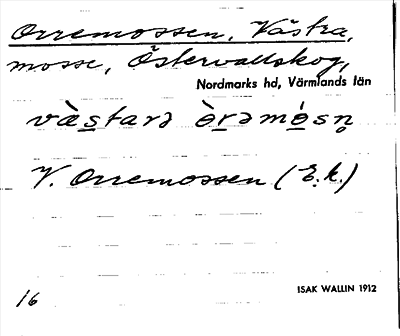 Orremossen, Västra,
mosse, Östervallskog,
Nordmarks hd, Värmlands län
và̀starə ò̀rəmò́sn̥
V. Orremossen (E.k.)
16
ISAK WALLIN 1912